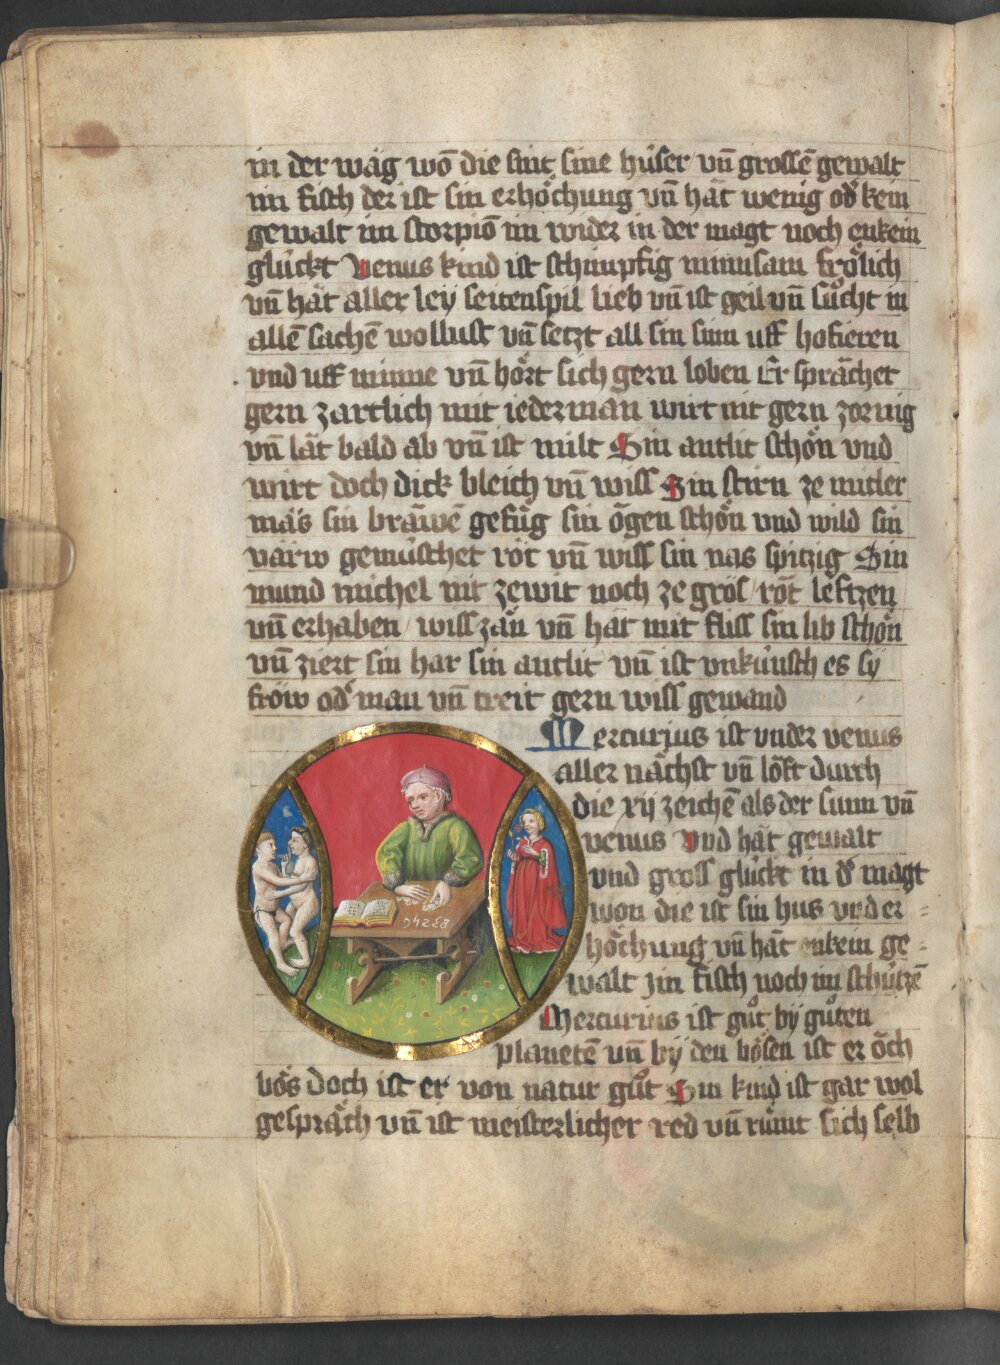 in der wäg wō die sint sine hüser vn̄ grossē gewalt
im fisch der ist sin erhöchung vn̄ hät wenig od̓ kein
gewalt im storpiō im wider in der magt noch enkein
glückt Venus kind ist schimpfig minnsam frölich
vn̄ hät aller ley seitenspil lieb vn̄ ist geil vn̄ sůcht in
allē sachē wollust vn̄ setzt all sin sinn uff hofieren
vnd uff minne vn̄ hört sich gern loben Er sprächet
gern zartlich mit iederman wirt nit gern zornig
vn̄ lät bald ab vn̄ ist milt Sin antlit schön vnd
wirt doch dick bleich vn̄ wiss Sin stirn ze mitler
mäs sin bräwē gefüg sin ögen schön vnd wild sin
värw gemüschet röt vn̄ wiss sin nas spitzig Sin
mund michel nit zewit noch ze gros / röt leftzen
vn̄ erhaben / wiss zän vn̄ hät mit fliss sin lib schön
vn̄ ziert sin har sin antlit vn̄ ist vnküusch es sy
fröw od̓ man vn̄ treit gern wiss gewand
Mercurjus ist vnder venus
aller nächst vn̄ löft durch
die xij zeichē als der sunn vn̄
venus Vnd hät gewalt
vnd gross glückt in d̓ magt
won die ist sin hus vnd er =
höchung vn̄ hät enkein ge =
walt jm fisch noch im schützē
Mercurius ist gůt by gůten
planetē vn̄ by den bösen ist er öch
bös doch ist er von natur gůt Sin kind ist gar wol
gespräch vn̄ ist meisterlicher red vn̄ rümt sich selb